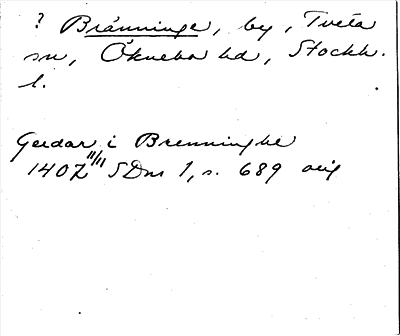 ? Bränninge, by, Tveta
sn, Öknebo hd, Stockh.
l.
Gerdar i Brenninghe
1402 11/11 SDns 1, s. 689 orig